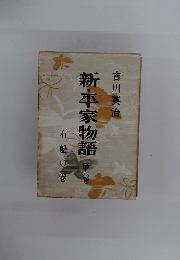 吉川英治
新・平家物語
第八巻
石船の巻